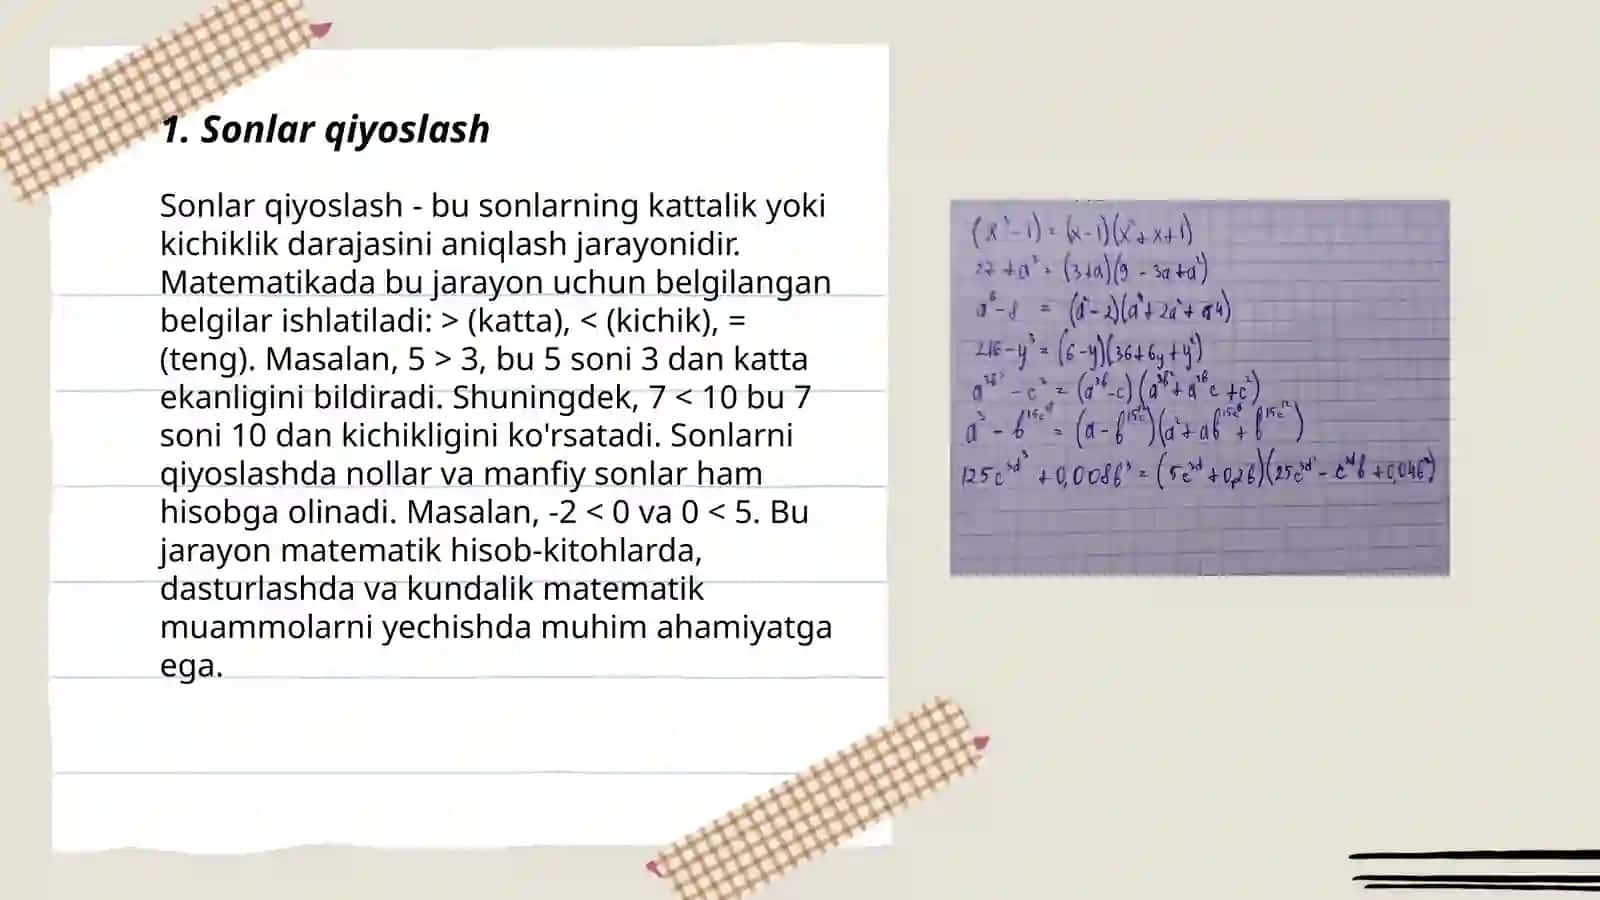 1. Sonlar qiyoslash
Sonlar qiyoslash - bu sonlarning kattalik yoki
kichiklik darajasini aniqlash jarayonidir.
Matematikada bu jarayon uchun belgilangan
belgilar ishlatiladi: > (katta), < (kichik), =
(teng). Masalan, 5 > 3, bu 5 soni 3 dan katta
ekanligini bildiradi. Shuningdek, 7 < 10 bu 7
soni 10 dan kichikligini ko'rsatadi. Sonlarni
qiyoslashda nollar va manfiy sonlar ham
hisobga olinadi. Masalan, -2 < 0 va 0 < 5. Bu
jarayon matematik hisob-kitohlarda,
dasturlashda va kundalik matematik
muammolarni yechishda muhim ahamiyatga
ega.
= (x-1)(x²+x+1)
27+a³ = (3+a)(9-3a+a²)
a⁶-8 = (a²-2)(a⁴+2a²+4)
216-y³ = (6-y)(36+6y+y²)